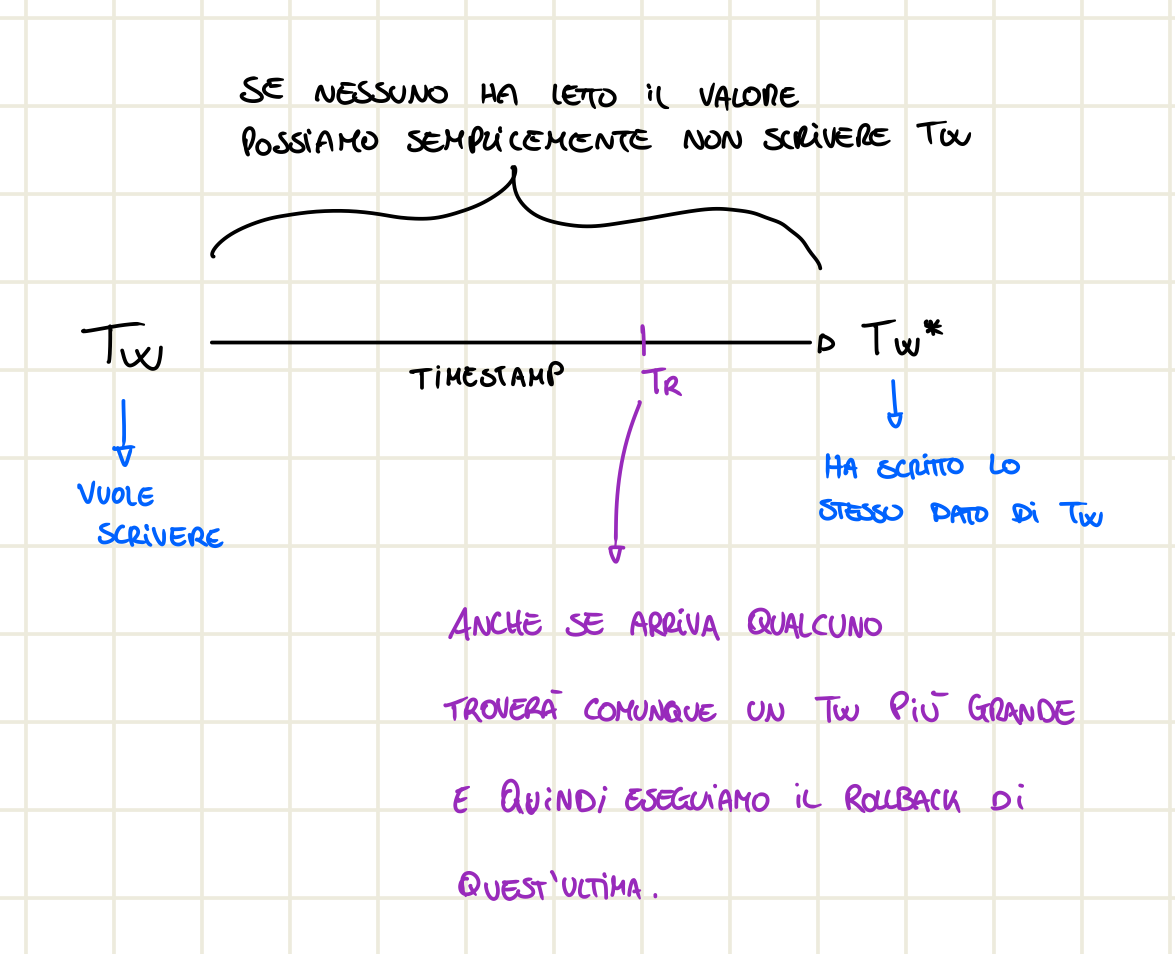 SE NESSUNO HA LETO iL VALORE
POSSiAMO SEMPLiCEMENTE NON SCRiVERE Tw
Tw
TiMESTAMP
TR
Tw*
VUOLE
SCRiVERE
HA SCRiTTO LO
STESSO DATO Di Tw
ANCHE SE ARRiVA QUALCUNO
TROVERÀ COMUNQUE UN Tw PiÙ GRANDE
E QUiNDi ESEGUiAMO iL ROLLBACK Di
QUEST'ULTiMA.